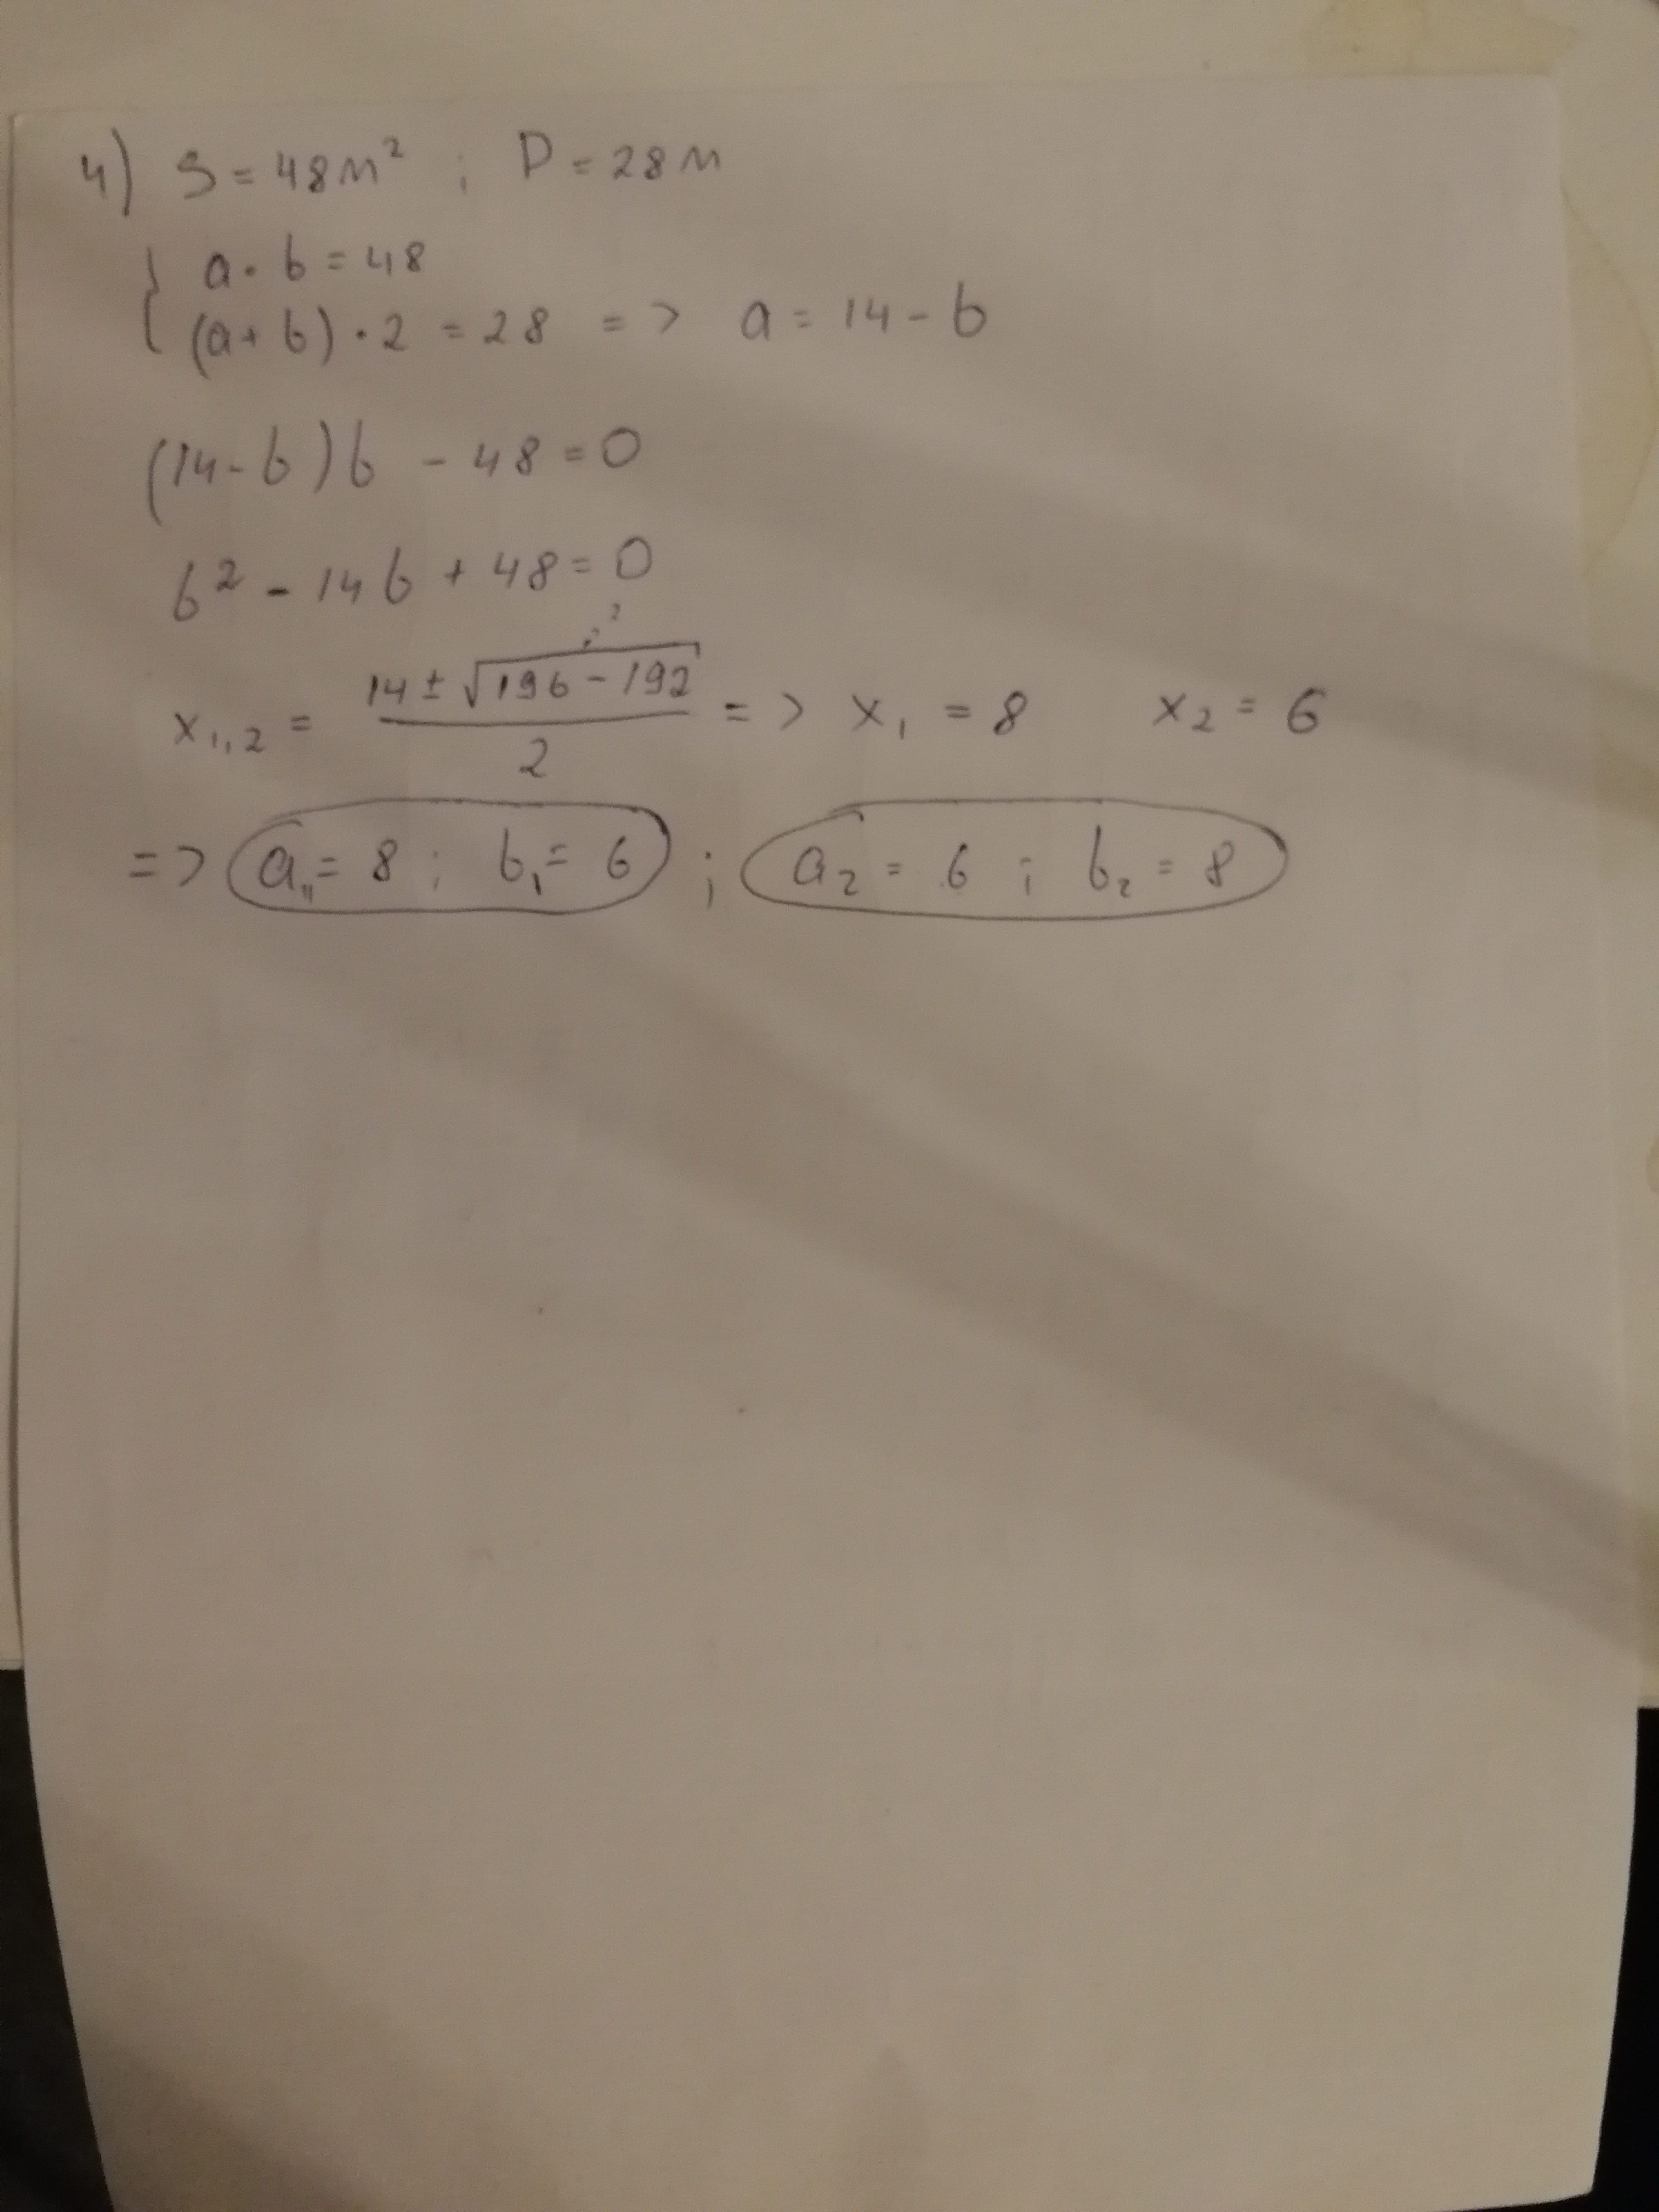 4) S = 48 m² ; P = 28 m
a · b = 48
(a + b) · 2 = 28 => a = 14 - b
(14 - b) b - 48 = 0
b² - 14b + 48 = 0
x₁,₂ = (14 ± √(196 - 192)) / 2 => x₁ = 8 x₂ = 6
=> a₁ = 8 ; b₁ = 6 ; a₂ = 6 ; b₂ = 8